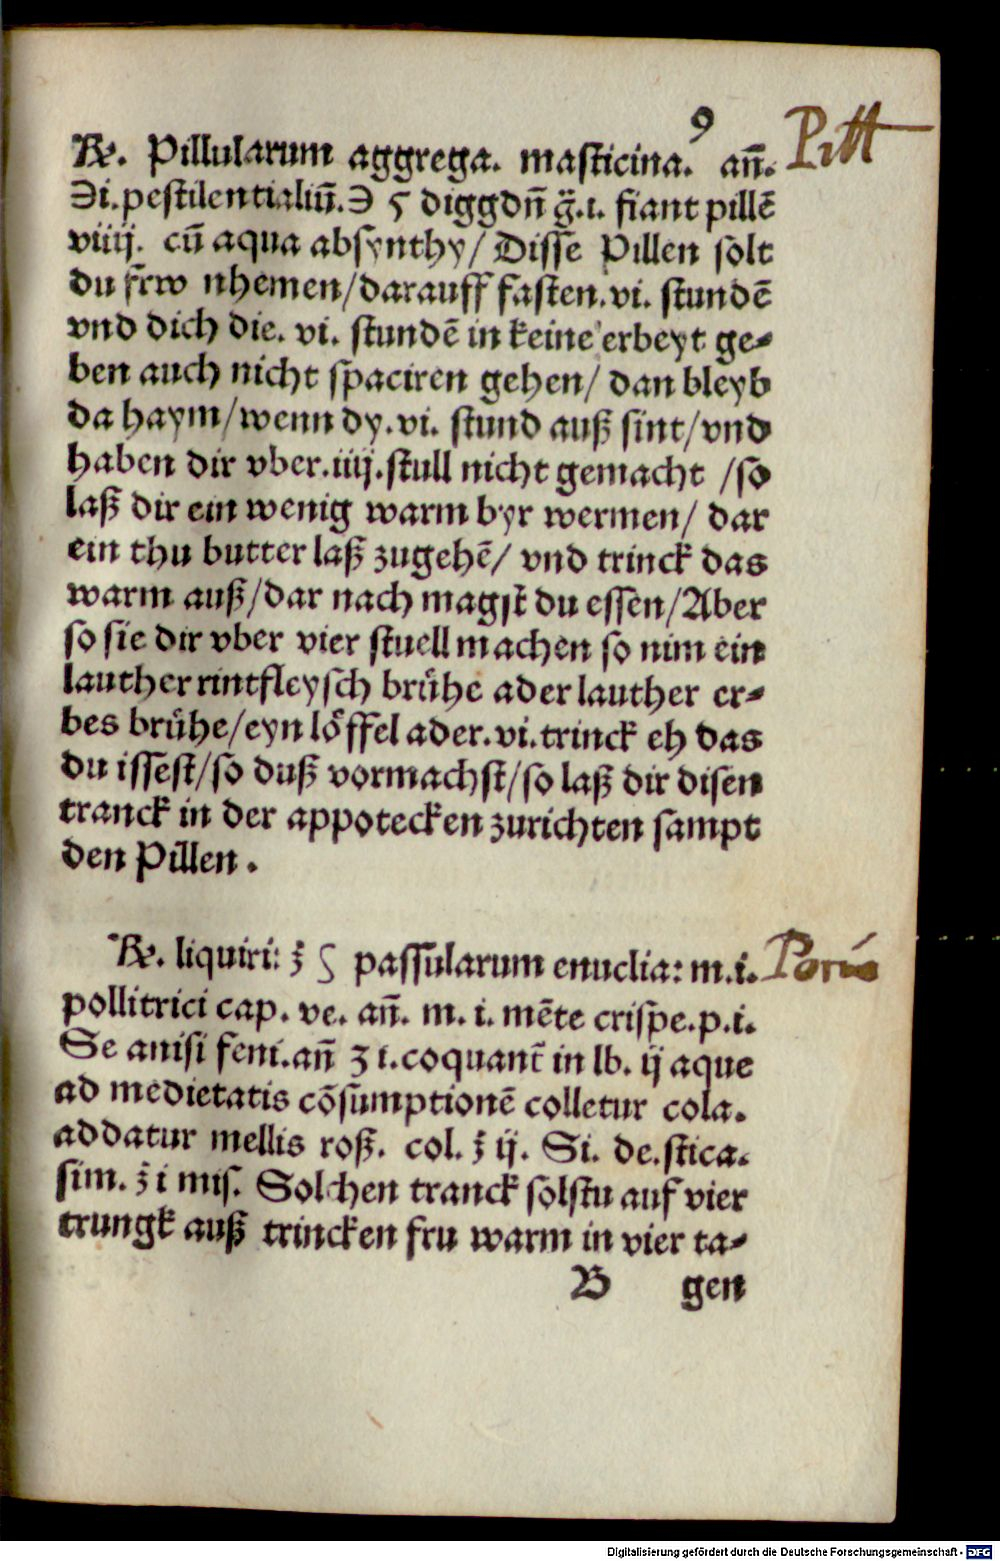 9
Pill
℞. Pillularum aggrega. masticina. añ.
℈i.pestilentialiū.℈ ς diggdn̄ g̈.i. fiant pillē
viiij. cū aqua absynthy/ Disse Pillen solt
du frw nhemen/darauff fasten.vi. stundē
vnd dich die. vi. stundē in keine erbeyt ge⸗
ben auch nicht spaciren gehen/ dan bleyb
da haym/wenn dy.vi. stund auß sint/vnd
haben dir vber.iiij.stull nicht gemacht /so
laß dir ein wenig warm byr wermen/ dar
ein thu butter laß zugehē/ vnd trinck das
warm auß/dar nach magst du essen/Aber
so sie dir vber vier stuell machen so nim ein
lauther rintfleysch brühe ader lauther er⸗
bes brühe/eyn löffel ader.vi.trinck eh das
du issest/so duß vormachst/so laß dir disen
tranck in der appotecken zurichten sampt
den Pillen.
℞. liquiri: ℥ ς passularum enuclia: m.i.
pollitrici cap. ve. añ. m. i. mēte crispe.p.i.
Se anisi feni.añ ʒ i.coquant̄ in lb. ij aque
ad medietatis cōsumptionē colletur cola.
addatur mellis roß. col. ℥ ij. Si. de.stica.
sim. ℥ i mis. Solchen tranck solstu auf vier
trungk auß trincken fru warm in vier ta⸗
B gen
Digitalisierung gefördert durch die Deutsche Forschungsgemeinschaft - DFG